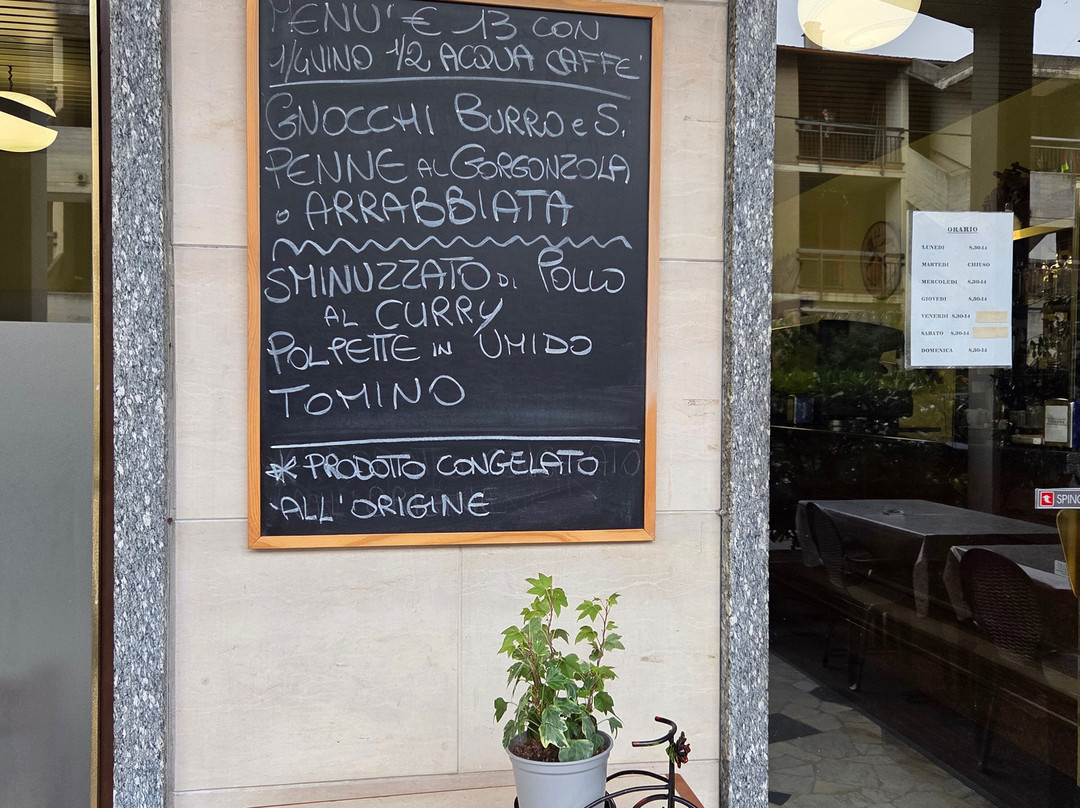 MENU' € 13 CON
1/4 VINO 1/2 ACQUA CAFFE'
GNOCCHI BURRO e S.
PENNE AL GORGONZOLA
o ARRABBIATA
SMINUZZATO DI POLLO
AL CURRY
POLPETTE IN UMIDO
TOMINO
* PRODOTTO CONGELATO
ALL'ORIGINE
ORARIO
LUNEDI 8,30-14
MARTEDI CHIUSO
MERCOLEDI 8,30-14
GIOVEDI 8,30-14
VENERDI 8,30-14
SABATO 8,30-14
DOMENICA 8,30-14
SPING